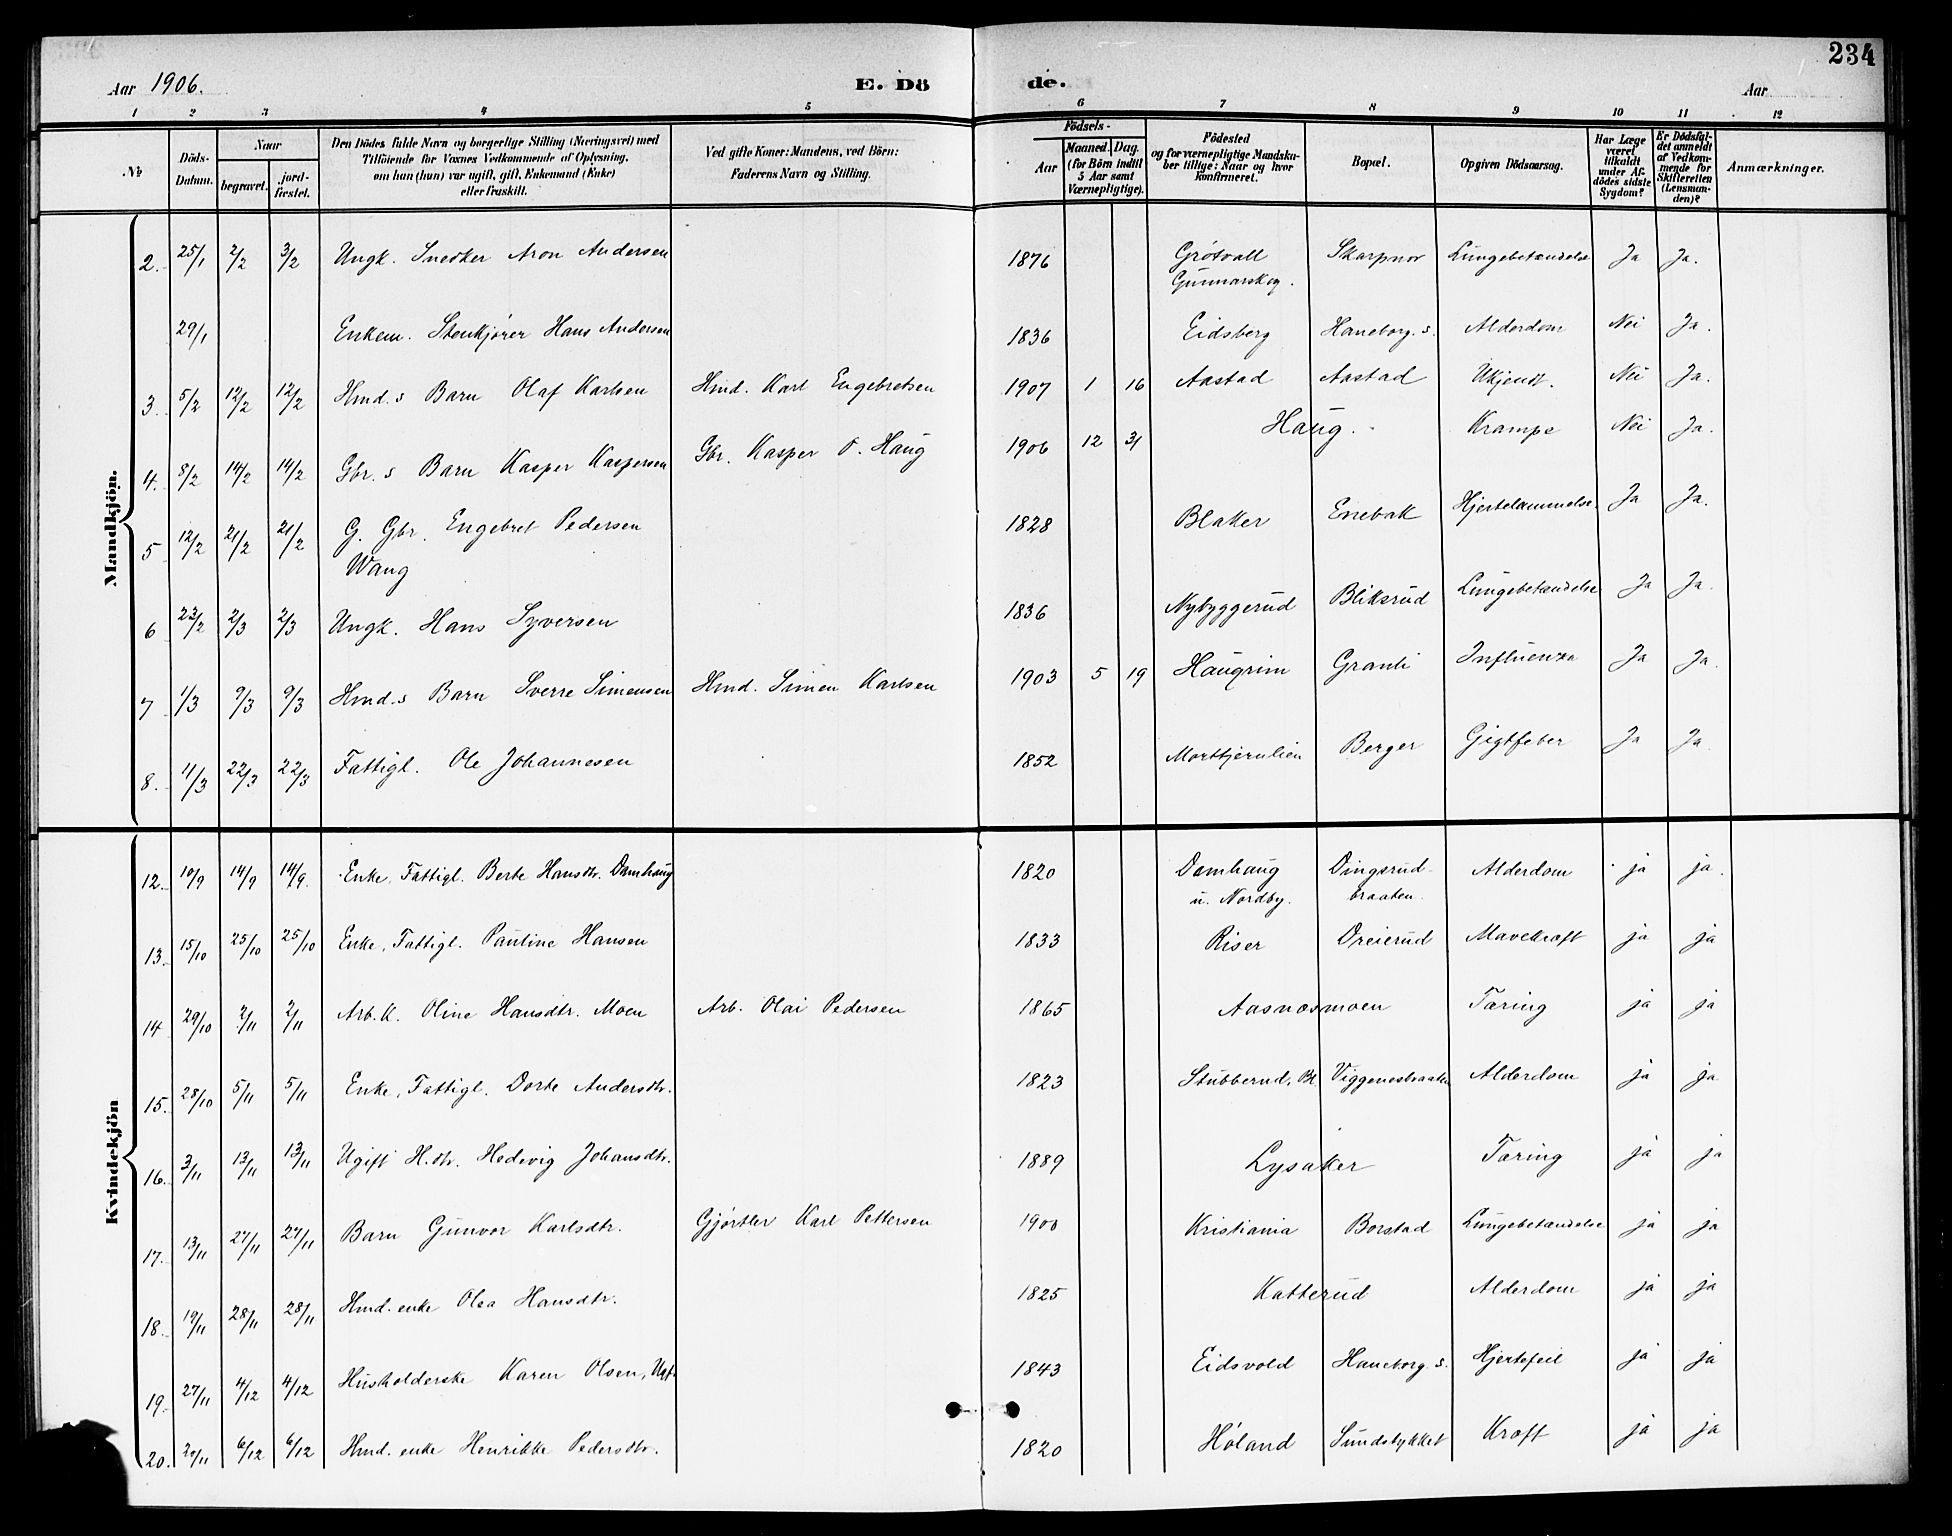 234
Aar 1906. E. Dö de. Aar
1 2 3 4 5 6 7 8 9 10 11 12
No Döds-Datum. Naar begravet. jord-fæstet. Den Dödes fulde Navn og borgerlige Stilling (Næringsvei) med Tilföiende for Voxnes Vedkommende af Oplysning, om han (hun) var ugift, gift, Enkemand (Enke) eller fraskilt. Ved gifte Koner: Mandens, ved Börn: Faderens Navn og Stilling. Födsels- Aar Maaned. Dag. (for Börn indtil 5 Aar samt Værnepligtige). Födested og for værnepligtige Mandskaber tillige: Naar og hvor konfirmeret. Bopæl. Opgiven Dödsaarsag. Har Læge været tilkaldt under Afdödes sidste Sygdom? Er Dödsfaldet anmeldt af Vedkommende for Skifteretten (Lensmanden)? Anmærkninger.
Mandkjön.
2. 25/1 2/2 3/2 Ungk. Snedker Aron Andersen 1876 Grötvall Gunnarskog. Skarpnor Lungebetændelse Ja Ja.
29/1 Enkem. Stenkjører Hans Andersen 1836 Eidsberg Haneborg. s. Alderdom Nei Ja.
3. 5/2 12/2 12/2 Hmd.s Barn Olaf Karlsen Hmd. Karl Engebretsen 1907 1 16 Aastad Aastad Ukjendt. Nei Ja.
4. 8/2 14/2 14/2 Gbr.s Barn Kasper Kaspersen Gbr. Kasper O. Haug 1906 12 31 Haug. Krampe Nei Ja.
5 12/2 21/2 21/2 G. Gbr. Engebret Pedersen Wang 1828 Blaker Enebak Hjertelammelse. Ja Ja.
6 23/2 2/3 2/3 Ungk. Hans Syversen 1836 Nybyggerud Bliksrud Lungebetændelse Ja Ja.
7 1/3 9/3 9/3 Hmd.s Barn Sverre Simensen Hmd. Simen Karlsen 1903 5 19 Haugrim Granli Influenza Ja Ja.
8. 11/3 22/3 22/3 Fattigl. Ole Johannesen 1852 Morttjernlien Berger Gigtfeber Ja Ja.
Kvindekjön
12. 10/9 14/9 14/9. Enke, Fattigl. Berte Hansdtr. Damhaug 1820 Damhaug u. Nordby. Dingsrud-braaten. Alderdom ja ja.
13. 15/10 25/10 25/10 Enke, Fattigl. Pauline Hansen 1833 Riser Dreierud Mavekræft ja ja
14 29/10 2/11 2/11 Arb.K. Oline Hansdtr. Moen Arb. Olai Pedersen 1865 Aasnæsmoen Tæring ja ja
15. 28/10 5/11 5/11 Enke, Fattigl. Dorte Andersdtr. 1823 Stubberud, Bl. Viggenesbraaten Alderdom ja ja
16. 3/11 13/11 13/11 Ugift H.dtr. Hedevig Johansdtr. 1889 Lysaker Tæring ja ja
17. 13/11 27/11 27/11 Barn Gunvor Karlsdtr. Gjørtler Karl Pettersen 1900 Kristiania Borstad Lungebetændelse ja ja
18. 19/11 28/11 28/11 Hmd. enke Olea Hansdtr. 1825 Katterud Alderdom ja ja
19. 27/11 4/12 4/12 Husholderske Karen Olsen, Ugft. 1843 Eidsvold Haneborg. s. Hjertefeil ja ja
20. 20/11 6/12 6/12 Hmd. enke Henrikke Pedersdtr. 1820 Høland Sundstykket Kræft ja ja